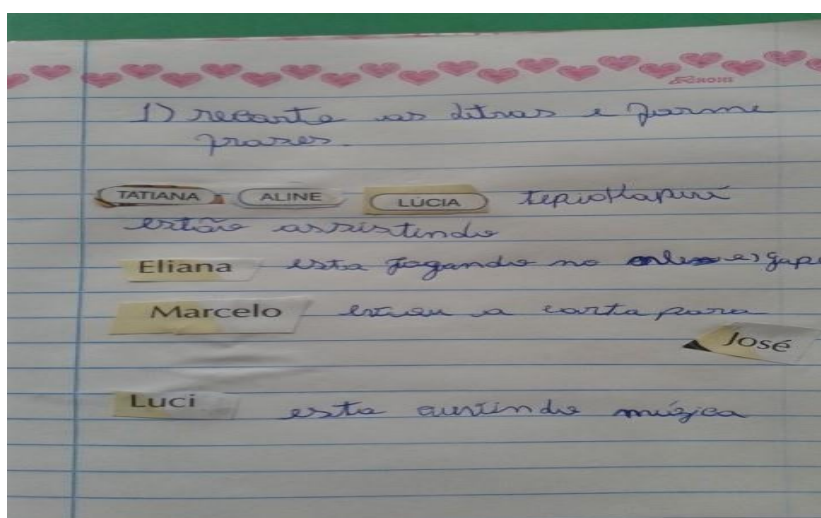 1) recorte as letras e forme
frases.
TATIANA ALINE LÚCIA
estão assistindo
Eliana esta jogando no
Marcelo a carta para
José
Luci esta curtindo múzica